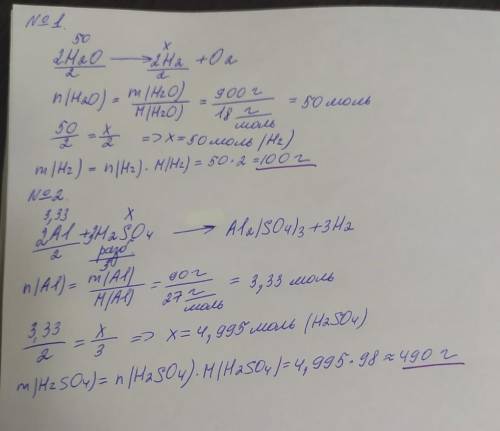 №1.
50 x
2H2O → 2H2 + O2
2 2
n(H2O) = m(H2O)/M(H2O) = 900 г/18 г/моль = 50 моль
50/2 = x/2 => x = 50 моль (H2)
m(H2) = n(H2) · M(H2) = 50 · 2 = 100 г
№2.
3,33 x
2Al + 3H2SO4 → Al2(SO4)3 + 3H2
2 разб 3
n(Al) = m(Al)/M(Al) = 90 г/27 г/моль = 3,33 моль
3,33/2 = x/3 => x = 4,995 моль (H2SO4)
m(H2SO4) = n(H2SO4) · M(H2SO4) = 4,995 · 98 ≈ 490 г